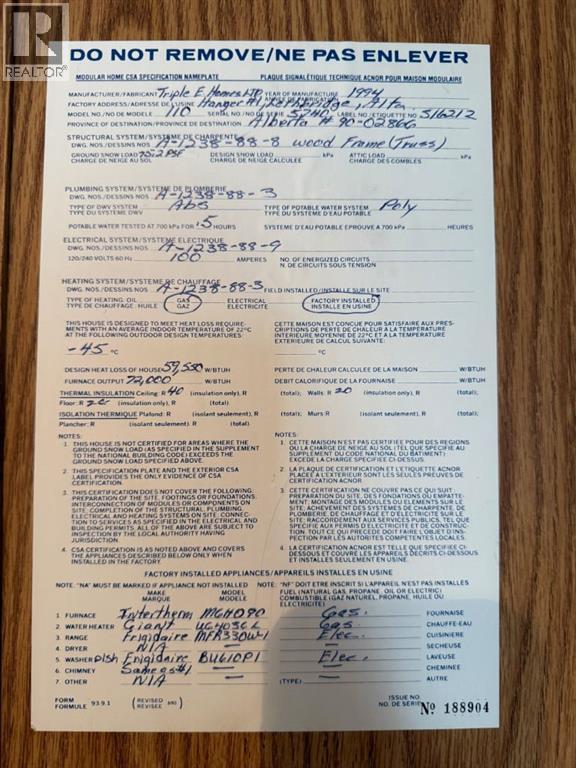 REALTOR®
DO NOT REMOVE/NE PAS ENLEVER
MODULAR HOME CSA SPECIFICATION NAMEPLATE PLAQUE SIGNALÉTIQUE TECHNIQUE ACNOR POUR MAISON MODULAIRE
MANUFACTURER/FABRICANT Triple E Homes LTD. YEAR OF MANUFACTURE 1994
FACTORY ADDRESS/ADRESSE DE L'USINE Hanger #1, Lethbridge, Alta.
MODEL NO./NO DE MODELE 110 SERIAL NO./NO DE SERIE LABEL NO./ETIQUETTE NO 516212
PROVINCE OF DESTINATION/PROVINCE DE DESTINATION Alberta # 90-02866
STRUCTURAL SYSTEM/SYSTÈME DE CHARPENTE
DWG. NOS./DESSINS NOS A-1238-88-8 wood Frame (Truss)
GROUND SNOW LOAD PSF DESIGN SNOW LOAD kPa ATTIC LOAD kPa
CHARGE DE NEIGE AU SOL CHARGE DE NEIGE CALCULEE CHARGE DES COMBLES
PLUMBING SYSTEM/SYSTEME DE PLOMBERIE
DWG. NOS./DESSINS NOS A-1238-88-3
TYPE OF DWV SYSTEM Abs TYPE OF POTABLE WATER SYSTEM Poly
TYPE DU SYSTEME DWV TYPE DU SYSTEME D'EAU POTABLE
POTABLE WATER TESTED AT 700 kPa FOR .5 HOURS SYSTEME D'EAU POTABLE EPROUVE A 700 kPa HEURES
ELECTRICAL SYSTEM/SYSTEME ELECTRIQUE
DWG. NOS./DESSINS NOS A-1238-88-9
120/240 VOLTS 60 Hz 100 AMPERES NO. OF ENERGIZED CIRCUITS
N. DE CIRCUITS SOUS TENSION
HEATING SYSTEM/SYSTEME DE CHAUFFAGE
DWG. NOS./DESSINS NOS A-1238-88-3 FIELD INSTALLED/INSTALLE SUR LE SITE
TYPE OF HEATING: OIL GAS ELECTRICAL FACTORY INSTALLED
TYPE DE CHAUFFAGE: HUILE GAZ ELECTRICITE INSTALLE EN USINE
THIS HOUSE IS DESIGNED TO MEET HEAT LOSS REQUIRE- CETTE MAISON EST CONÇUE POUR SATISFAIRE AUX PRES-
MENTS WITH AN AVERAGE INDOOR TEMPERATURE OF 22°C CRIPTIONS DE PERTE DE CHALEUR A LA TEMPERATURE
AT THE FOLLOWING OUTDOOR DESIGN TEMPERATURE: INTERIEURE MOYENNE DE 22°C ET A LA TEMPERATURE
EXTERIEURE DE CALCUL SUIVANTE:
-45 °C °C
DESIGN HEAT LOSS OF HOUSE 59,550 W/BTUH PERTE DE CHALEUR CALCULEE DE LA MAISON W/BTUH
FURNACE OUTPUT 72,000 W/BTUH DEBIT CALORIFIQUE DE LA FOURNAISE W/BTUH
THERMAL INSULATION Ceiling: R 40 (insulation only), R (total); Walls: R 20 (insulation only), R (total);
Floor: R (insulation only), R (total).
ISOLATION THERMIQUE Plafond: R (isolant seulement), R (total); Murs: R (isolant seulement), R (total);
Plancher: R (isolant seulement), R (total).
NOTES: NOTES:
1. THIS HOUSE IS NOT CERTIFIED FOR AREAS WHERE THE 1. CETTE MAISON N'EST PAS CERTIFIEE POUR DES REGIONS
GROUND SNOW LOAD AS SPECIFIED IN THE SUPPLEMENT OU LA CHARGE DE NEIGE AU SOL (TEL QUE SPECIFIE
TO THE NATIONAL BUILDING CODE) EXCEEDS THE AU SUPPLEMENT DU CODE NATIONAL DU BÂTIMENT)
GROUND SNOW LOAD SPECIFIED ABOVE. EXCEDE LA CHARGE SPECIFIEE CI-DESSUS.
2. THIS SPECIFICATION PLATE AND THE EXTERIOR CSA 2. LA PLAQUE DE CERTIFICATION ET L'ETIQUETTE ACNOR
LABEL PROVIDES THE ONLY EVIDENCE OF CSA PLACÉE A L'EXTERIEUR SONT LES SEULES PREUVES DE
CERTIFICATION. CERTIFICATION ACNOR
3. THIS CERTIFICATION DOES NOT COVER THE FOLLOWING. 3. CETTE CERTIFICATION NE COUVRE PAS CE QUI SUIT:
PREPARATION OF THE SITE, FOOTINGS OR FOUNDATIONS. PREPARATION DU SITE, DES FONDATIONS OU EMPATTE-
INTERCONNECTION OF MODULES OR COMPONENTS ON MENT: MONTAGE DES MODULES OU ELEMENTS SUR LE
SITE; COMPLETION OF THE STRUCTURAL, PLUMBING, SITE; ACHEVEMENT DES SYSTEMES DE CHARPENTE, DE
ELECTRICAL AND HEATING SYSTEMS ON SITE; CONNEC- PLOMBERIE DE CHAUFFAGE ET D'ELECTRICITE SUR LE
TION TO SERVICES AS SPECIFIED IN THE ELECTRICAL AND SITE: RACCORDEMENT AUX SERVICES PUBLICS, TEL QUE
BUILDING PERMITS. ALL OF THE ABOVE ARE SUBJECT TO SPECIFIE AUX PERMIS D'ELECTRICITE ET DE CONSTRUC-
INSPECTION BY THE LOCAL AUTHORITY HAVING TION, TOUT CE QUI PRECEDE DOIT FAIRE L'OBJET D'IN-
JURISDICTION. SPECTION PAR LES AUTORITES COMPETENTES LOCALES.
4. CSA CERTIFICATION AS NOTED ABOVE AND COVERS 4. LA CERTIFICATION ACNOR EST TELLE QUE SPECIFIEE CI-
THE APPLIANCES DESCRIBED BELOW ONLY WHEN DESSUS ET COUVRE LES APPAREILS DÉCRITS CI-DESSOUS
INSTALLED IN THE FACTORY. ET INSTALLES SEULEMENT EN USINE.
FACTORY INSTALLED APPLIANCES/APPAREILS INSTALLES EN USINE
NOTE. "NA" MUST BE MARKED IF APPLIANCE NOT INSTALLED NOTE: "NF" DOIT ETRE INSCRIT SI L'APPAREIL N'EST PAS INSTALLE
MAKE MODEL FUEL (NATURAL GAS, PROPANE, OIL OR ELECTRIC)
MARQUE MODELE COMBUSTIBLE (GAZ NATUREL, PROPANE, HUILE OU
ELECTRICITE)
1. FURNACE Intertherm MGH090 Gas. FOURNAISE
2. WATER HEATER Giant Gas CHAUFFE-EAU
3. RANGE Frigidaire Elec. CUISINIERE
4. DRYER N/A — — SECHEUSE
5. WASHER Dish Frigidaire BU610P1 Elec. LAVEUSE
6. CHIMNEY Same as #1 — CHEMINEE
7. OTHER N/A — (TYPE) AUTRE
FORM 93.9.1 (REVISED
FORMULE (REVISEE
ISSUE NO
NO. DE SERIE Nº 188904